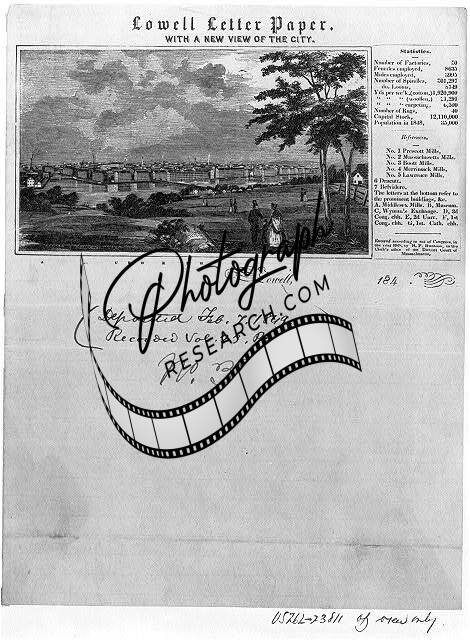 Lowell Letter Paper.
WITH A NEW VIEW OF THE CITY.
Statistics.
Number of Factories, 50
Females employed, 8635
Males employed, 3995
Number of Spindles, 301,297
do. Looms, 8749
Yds per we'k, (cotton,) 1,920,900
" " " (woollen,) 21,291
" " " carpeting, 6,500
Number of Rags, 40
Capital Stock, 12,110,000
Population in 1848, 35,000
References.
No. 1 Prescott Mills,
No. 2 Massachusetts Mills,
No. 3 Boott Mills,
No. 4 Merrimack Mills,
No. 5 Lawrence Mills,
6 Dracutt.
7 Belvidere.
The letters at the bottom refer to
the prominent buildings, &c.
A, Middlesex Mills. B, Museum.
C, Wyman's Exchange. D, 2d
Cong. chh. E, 2d Univ. F, 1st
Cong. chh. G, 1st. Cath. chh.
Entered according to act of Congress, in
Clerk's office of the District Court of
Massachusetts.
Lowell, 184 .
Deposited Feb.
Recorded Vol.
Photograph
RESEARCH.COM
USZ62-23811 of view only.